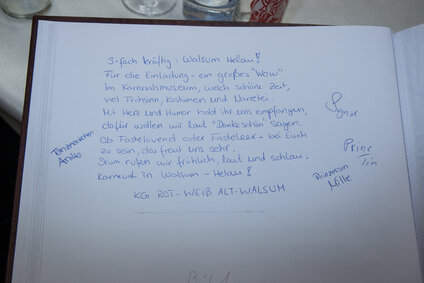 3-fach kräftig: Walsum Helau!
Für die Einladung - ein großes "Wow"
Im Karnevalsmuseum, welch schöne Zeit,
viel Frohsinn, Kostümen und Narretei.
Mit Herz und Humor habt ihr uns empfangen,
dafür wollen wir laut "Dankeschön" sagen.
Ob Fastelovend oder Fasteleer - bei Euch
zu sein, das freut uns sehr.
Drum rufen wir fröhlich, laut und schlau:
Karneval in Walsum - Helau!
KG ROT-WEIß ALT-WALSUM
Prinz
Prinzessin